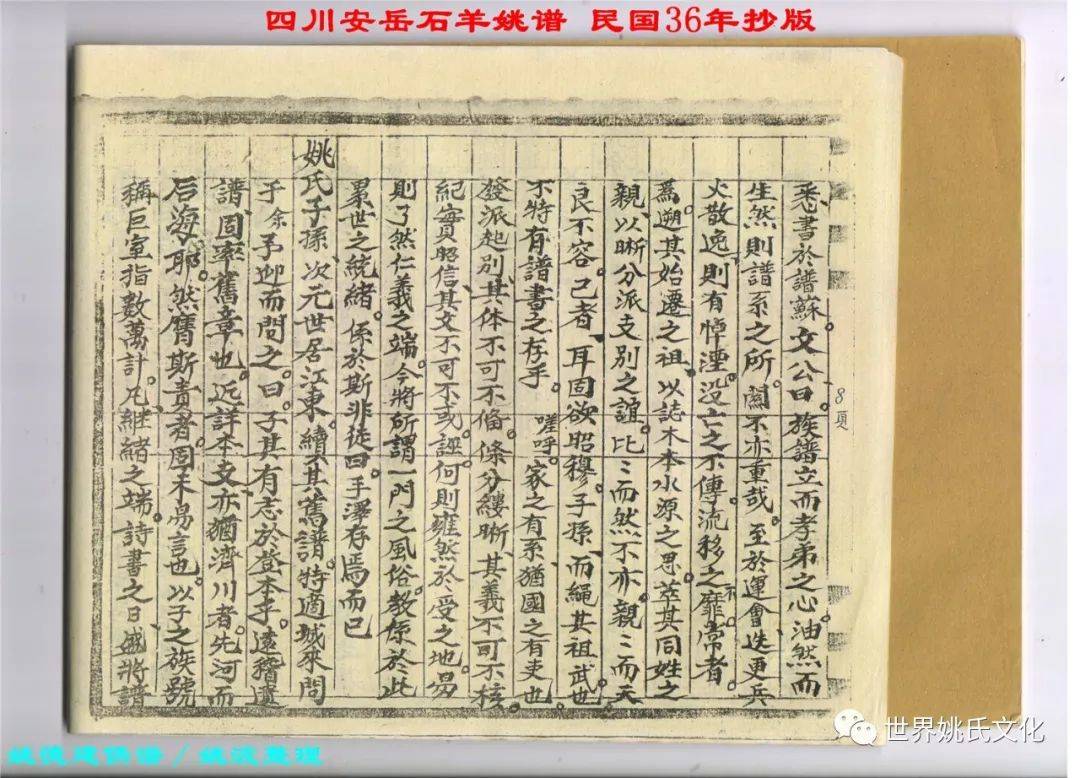 四川安岳石羊姚谱 民国36年抄版
悉書於譜蘇。文公曰。族譜立而孝弟之心油然而
生然則譜系之所。關不亦重哉。至於運會迭更兵
火散逸、則有悼湮。没亡之不傳。流移之靡常者。
為遡。其始遷之祖。以誌木本水源之思。萃其同姓之
親、以晰分派支別之誼。比〻而然、不亦。親〻而天
良不容。已者、耳固欲昭穆。子孫、而繩其祖武。也
不特有譜書之存乎。嗟呼。家之有系、猶國之有吏也
發派起别、其体不可不俻。條分縷晰、其義不可不核。
紀實昭信、其文不可不或。誣。何則雍然於受之地。易
則了然仁義之端。今將所謂一門之風俗。教條於此
累世之統緒。係於斯非徒曰。手澤存焉而已
姚氏子孫、次元世居江東。續不其舊譜。特適城來問
于余。予迎而問之。曰。子其有志於登本乎。遠稽遺
譜、固率舊章也。近詳本支、亦猶濟川者。先河而
后海耶。然膺斯責者。固未易言也。以子之族號
稱巨室指數萬計。凡継緒之端。詩書之日、盛將譜
8頁
世界姚氏文化